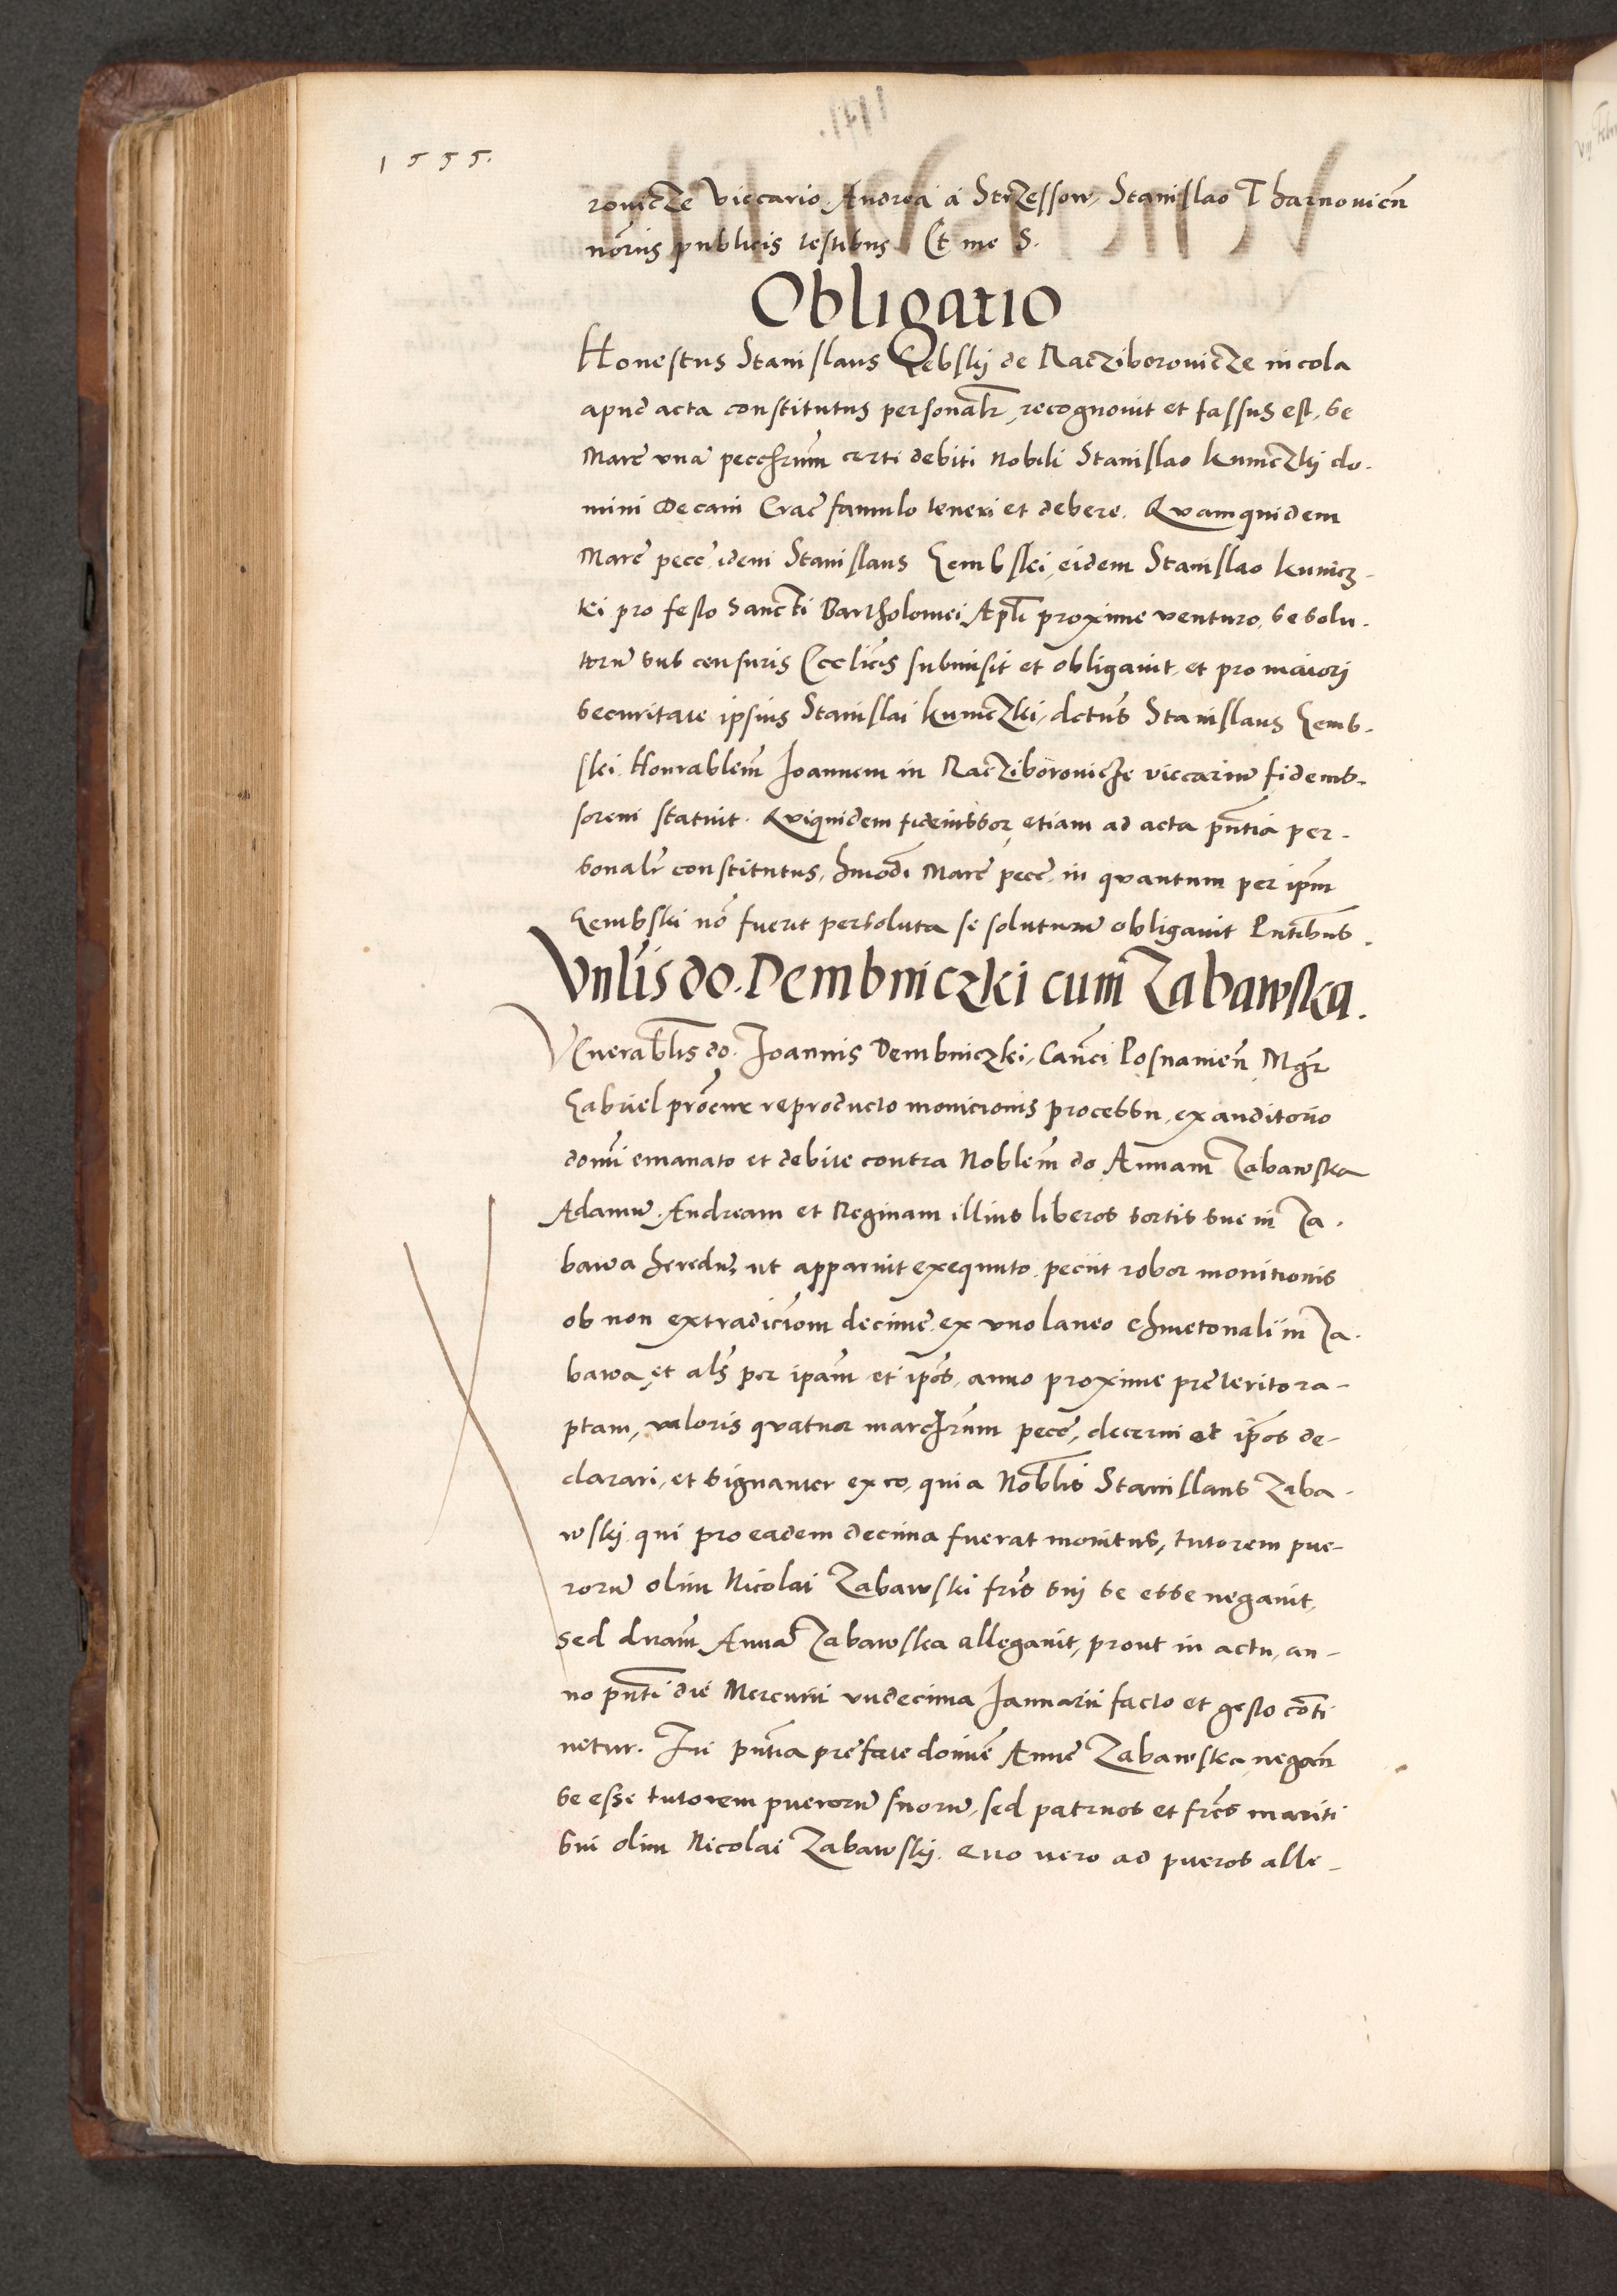 1555.
rovicze Viccario. Andrea a Strzessow, Stanislao Tharnovień
nõriis publicis testibus Et me S.
Obligatio
Honestus Stanislaus Gębskij de Racziborovicze incola
apud acta constitutus personalr̃, recognovit et fassus est, se
Marc̃ vnã pecc̃hrum certi debiti Nobili Stanislao kuniczkij do-
mini Decani Crac̃ famulo teneri et debere. Quamquidem
Marc̃ pecc̃ idem Stanislaus Gembskei, eidem Stanislao kunicz-
kei pro festo Sancti Bartholomei Apłi proxime venturo, se solu-
torum̃ sub censuris Eccłicis submisit et obligavit, et pro maiori
securitate ipsius Stanislai kuniczki, dctus Stanislaus Gemb-
skei Honrablem̃ Joannem in Racziborovicze viccarium̃ fideius-
sorem statuit. Quiquidem fideiussor, etiam ad acta pñtia per-
sonalr̃ constitutus, hmõdi Marc̃ pecc̃ in quantum per ipm̃
Gembski nõ fuerit persoluta se soluturum̃ obligavit Pñtibus.
Vnlis do. Dembniczki cum Zabawska.
Venerablis do. Joannis Dembniczki, Canci Posnanień Mgr̃
Gabriel procur̃ reproducto monicionis processu, ex auditorio
domi emanato et debite contra Noblem̃ do Annam Zabawska
Adamum̃. Andream et Reginam illius liberos sortis sue in Za-
bawa heredum̃, ut apparuit exequuto. peciit robor monitionis
ob non extradiciom̃ decime. ex vno laneo chmetonali in Za-
bawa, et als̃ per ipam̃ et ipõs, anno proxime preterito ra-
ptam, valoris quatuor marchrum pecc̃, decerni et ipõs de-
clarari, et signanter ex eo, quia Noblis Stanislaus Zaba-
wskij qui pro eadem decima fuerat monitus, tutorem pue-
rorum̃ olim Nicolai Zabawski fr̃is sui se esse negavit,
sed dnam̃ Annã Zabawska allegavit, prout in actu, an-
no pñti die Mercurii vndecima Januarii facto et gesto conti
netur. In pñtia prefate domine Anne Zabawska negań
se esse tutorem puerorum̃ suorum̃, sed patruos et fr̃es mariti
sui olim Nicolai Zabawskij. Quo vero ad pueros alle-